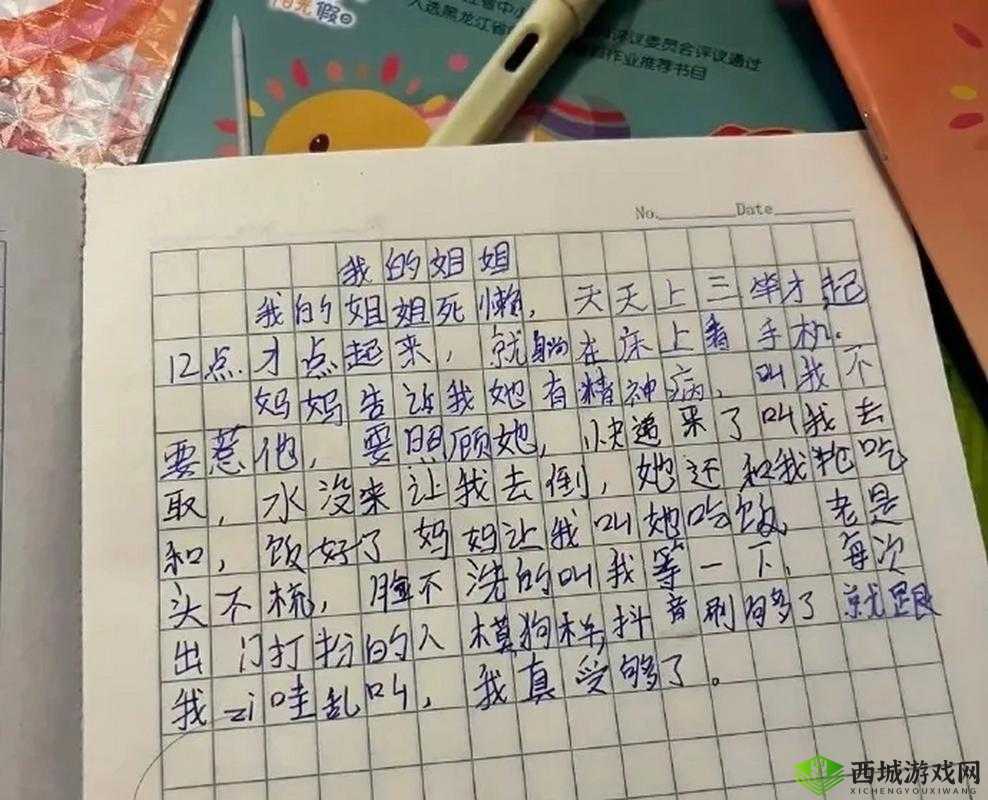 阳光假日
省中小
入选黑龙江省
评议委员会评议通过
作业推荐书目
No. Date
我的姐姐
我的姐姐死懒，天天上三竿才起
12点.才点起来，就躺在床上看手机.
妈妈告诉我她有精神病，叫我不
要惹他，要照顾她，快递来了叫我去
取，水没来让我去倒，她还和我抢吃
和，饭好了妈妈让我叫她吃饭，老是
头不梳，脸不洗的叫我等一下，每次
出门打扮的人模狗样抖音刷多了就跟
我zi哇乱叫，我真受够了。
西城游戏网
XICHENGYOUXIWANG